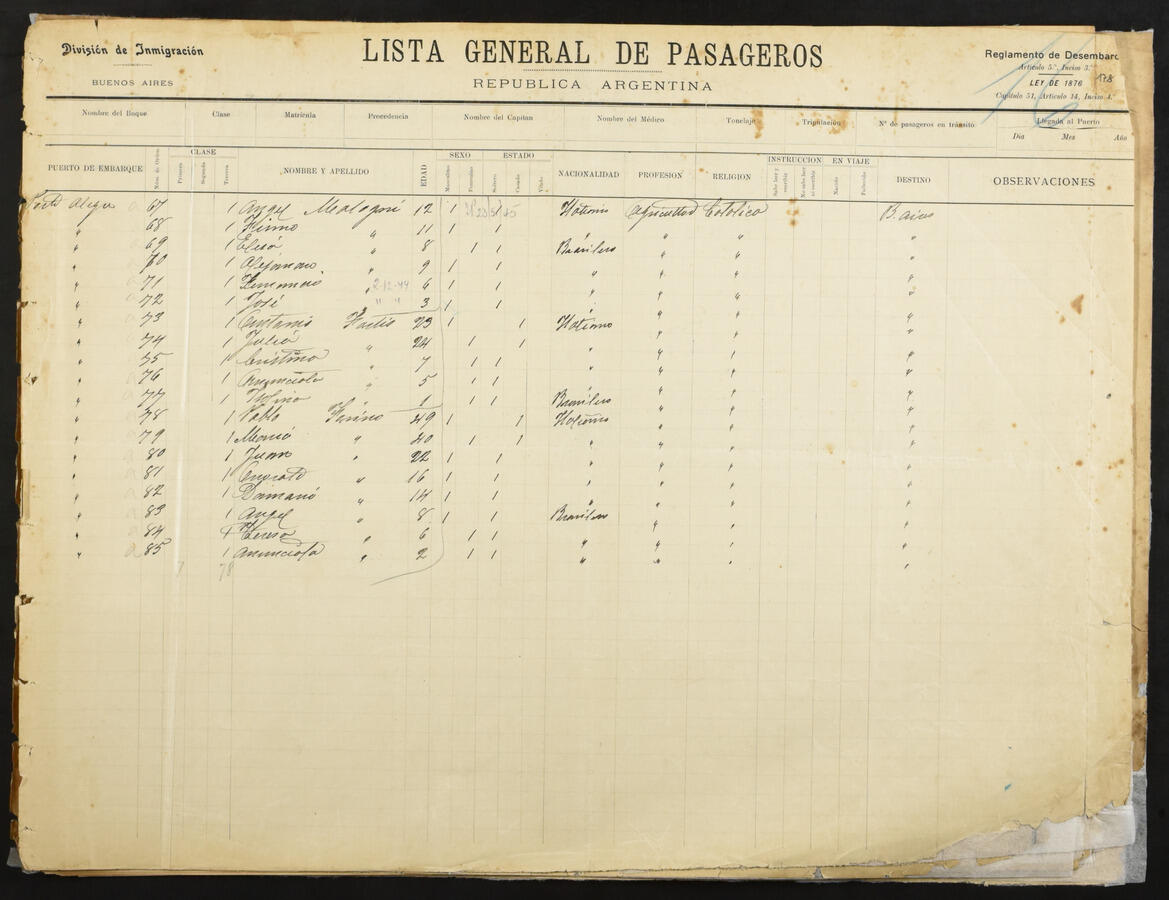 División de Inmigración
BUENOS AIRES
LISTA GENERAL DE PASAGEROS
REPUBLICA ARGENTINA
Reglamento de Desembarc
Artículo 5º, Inciso 3º
LEY DE 1876
178
Capítulo 51, Artículo 14, Inciso 4.
Nombre del Buque Clase Matrícula Procedencia Nombre del Capitan Nombre del Médico Tonelaje Tripulación Nº de pasageros en tránsito Llegada al Puerto
Día Mes Año
PUERTO DE EMBARQUE Núm. de Orden CLASE Primera Segunda Tercera NOMBRE Y APELLIDO EDAD SEXO Masculino Femenino ESTADO Soltero Casado Viudo NACIONALIDAD PROFESION RELIGION INSTRUCCION Sabe leer y escribir No sabe leer ni escribir EN VIAJE Nacido Fallecido DESTINO OBSERVACIONES
Porto Alegre 67 1 Angel 12 1 1 Italiano Agricultor Católica B. aires
" 68 1 " 11 1 1 " "  "
" 69 1 " 8 1 1 Brasilero " " "
" 70 1 Alejandro " 9 1 1 " " " "
" 71 1 " 2-12-44 6 1 1 " " " "
" 72 1 José " " 3 1 1 " " " "
" 73 1 23 1 1 Italiano " " "
" 74 1 Julia " 24 1 1 " " " "
" 75 1 Cristina " 7 1 1 " " " "
" 76 1 Anunciata " 5 1 1 " " " "
" 77 1 " 1 1 1 Brasilero " " "
" 78 1 Pablo 49 1 1 Italiano " " "
" 79 1 Maria " 40 1 1 " " " "
" 80 1 Juan " 22 1 1 " " " "
" 81 1 " 16 1 1 " " " "
" 82 1 " 14 1 1 " " " "
" 83 1 Angel " 8 1 1 Brasilero " " "
" 84 1 Teresa " 6 1 1 " " " "
" 85 1 Anunciata " 2 1 1 " " " "
78